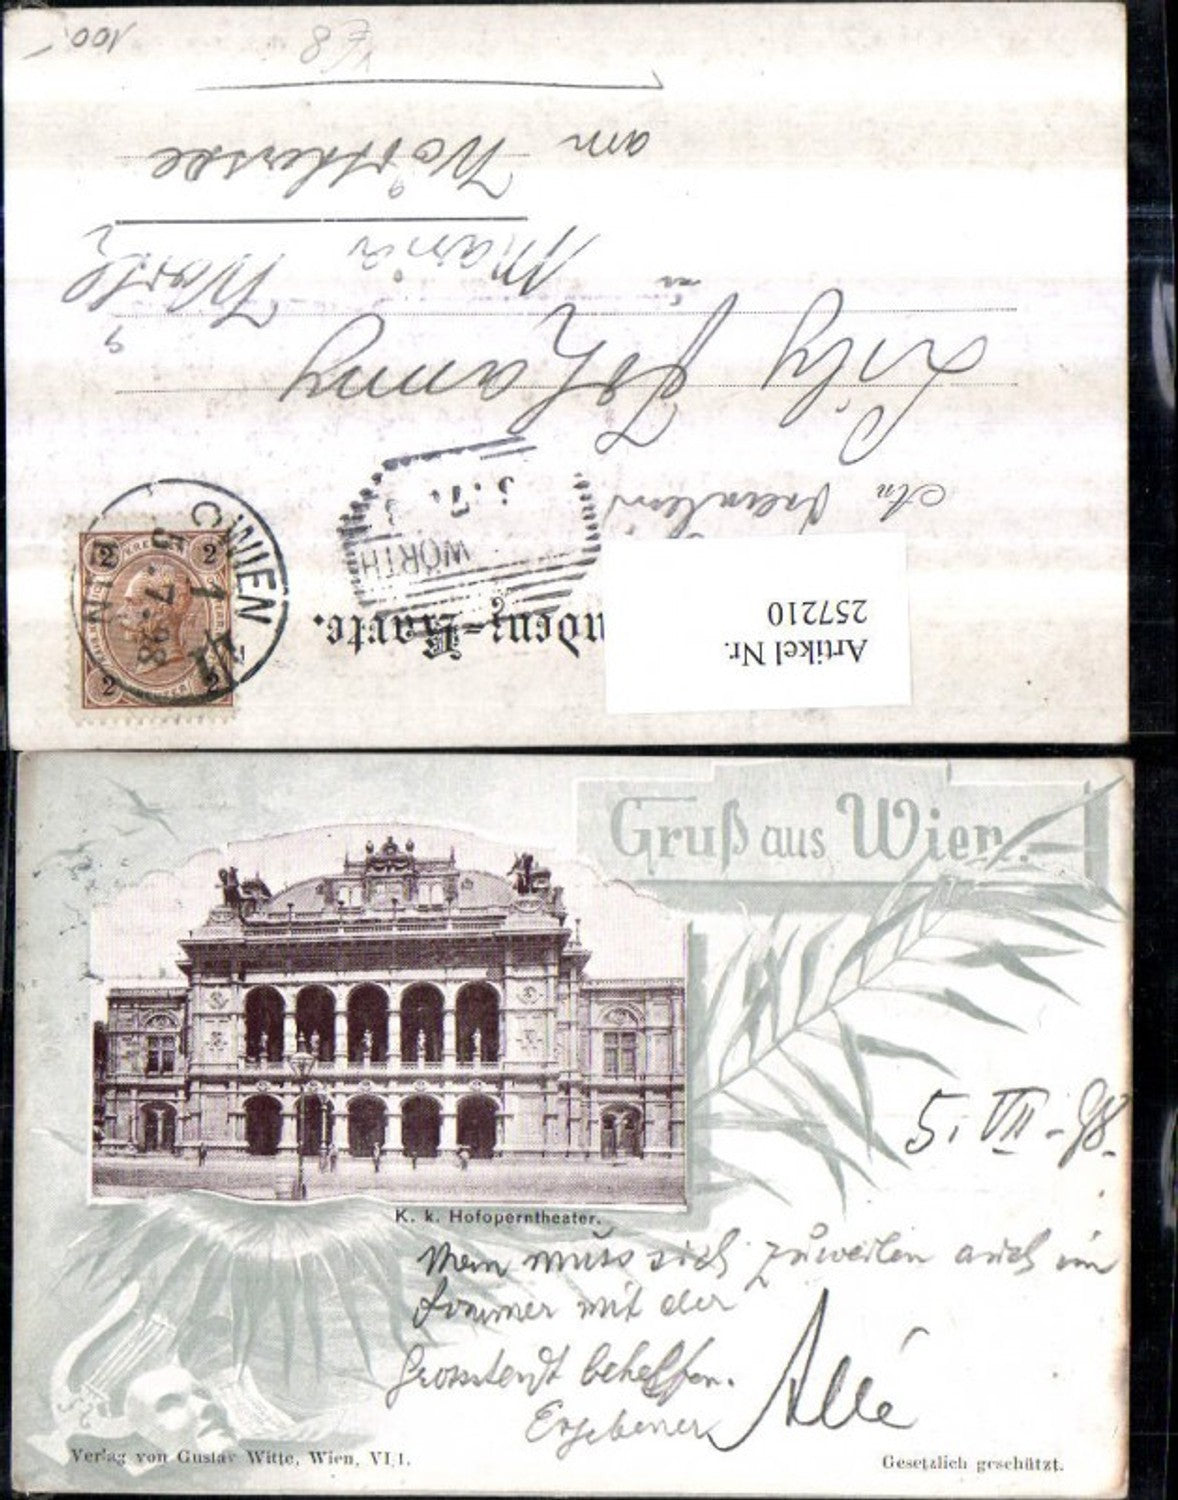 100.-
am Wörthersee
Maria Wörth
in
Lily Johanny
An Fräulein
WÖRTH
WIEN
5. 7. 98
2 2
2 2
ndenz-Karte.
Artikel Nr.
257210
Gruß aus Wien.
5. VII - 98.
K. k. Hofoperntheater.
Man muss sich zuweilen auch im
Sommer mit der
Grosstadt behelfen.
Ergebener
Verlag von Gustav Witte, Wien, VI/1.
Gesetzlich geschützt.